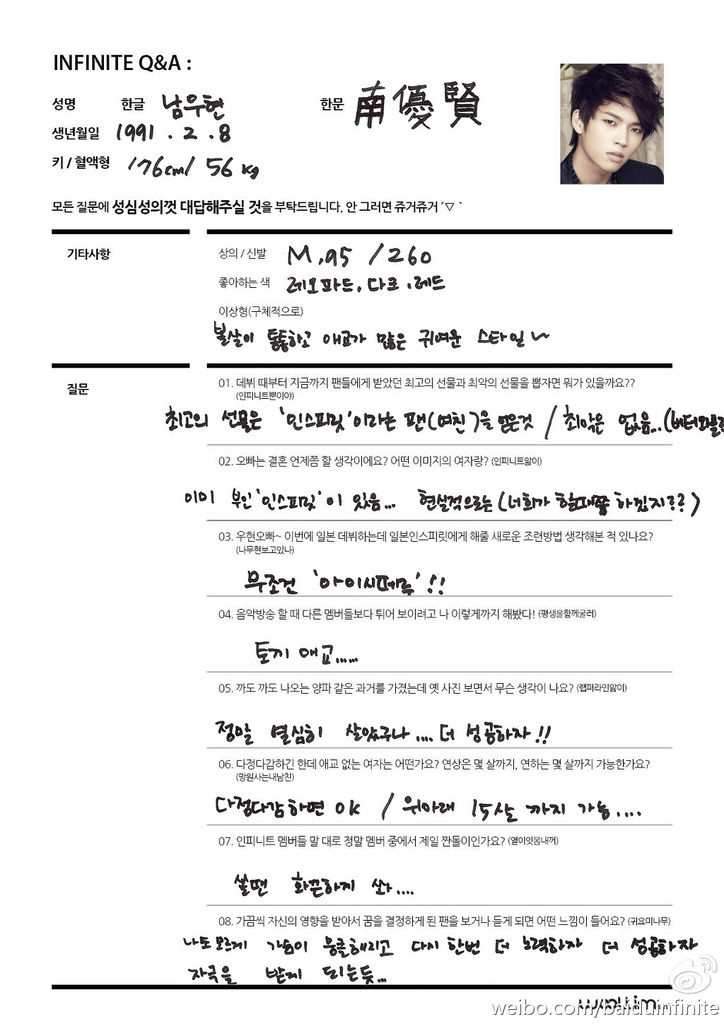 INFINITE Q&A :
성명 한글 남우현 한문 南優賢
생년월일 1991 . 2 . 8
키 / 혈액형 176cm/ 56 kg
모든 질문에 성심성의껏 대답해주실 것을 부탁드립니다. 안 그러면 쥬거쥬거 ´▽`
기타사항
상의 / 신발 M,95 / 260
좋아하는 색 레오파드, 다크, 레드
이상형(구체적으로)
볼살이 통통하고 애교가 많은 귀여운 스타일~
질문
01. 데뷔 때부터 지금까지 팬들에게 받았던 최고의 선물과 최악의 선물을 뽑자면 뭐가 있을까요??
(인피니트뿐이야)
최고의 선물은 '인스피릿'이라는 팬(여친)을 얻은것 / 최악은 없음...
02. 오빠는 결혼 언제쯤 할 생각이에요? 어떤 이미지의 여자랑? (인피니트앓이)
이미 부인 '인스피릿'이 있음... 현실적으로는 (너희가 할때쯤 하겠지??)
03. 우현오빠~ 이번에 일본 데뷔하는데 일본인스피릿에게 해줄 새로운 조련방법 생각해본 적 있나요?
(나무현보고있나)
무조건 '아이시떼루'!!
04. 음악방송 할 때 다른 멤버들보다 튀어 보이려고 나 이렇게까지 해봤다! (평생을함께굴러)
토끼 애교.....
05. 까도 까도 나오는 양파 같은 과거를 가졌는데 옛 사진 보면서 무슨 생각이 나요? (캡퍼라인앓이)
정말 열심히 살았구나.... 더 성공하자!!
06. 다정다감하긴 한데 애교 없는 여자는 어떤가요? 연상은 몇 살까지, 연하는 몇 살까지 가능한가요?
(망원사는내남친)
다정다감하면 OK / 위아래 15살 까지 가능....
07. 인피니트 멤버들 말 대로 정말 멤버 중에서 제일 짠돌이인가요? (열이잇몸내꺼)
쓸땐 화끈하게 쏴....
08. 가끔씩 자신의 영향을 받아서 꿈을 결정하게 된 팬을 보거나 듣게 되면 어떤 느낌이 들어요? (귀요미나무)
나도 모르게 가슴이 뭉클해지고 다시 한번 더 노력하자 더 성공하자
자극을 받게 되는듯...
woollim
weibo.com/baiduinfinite